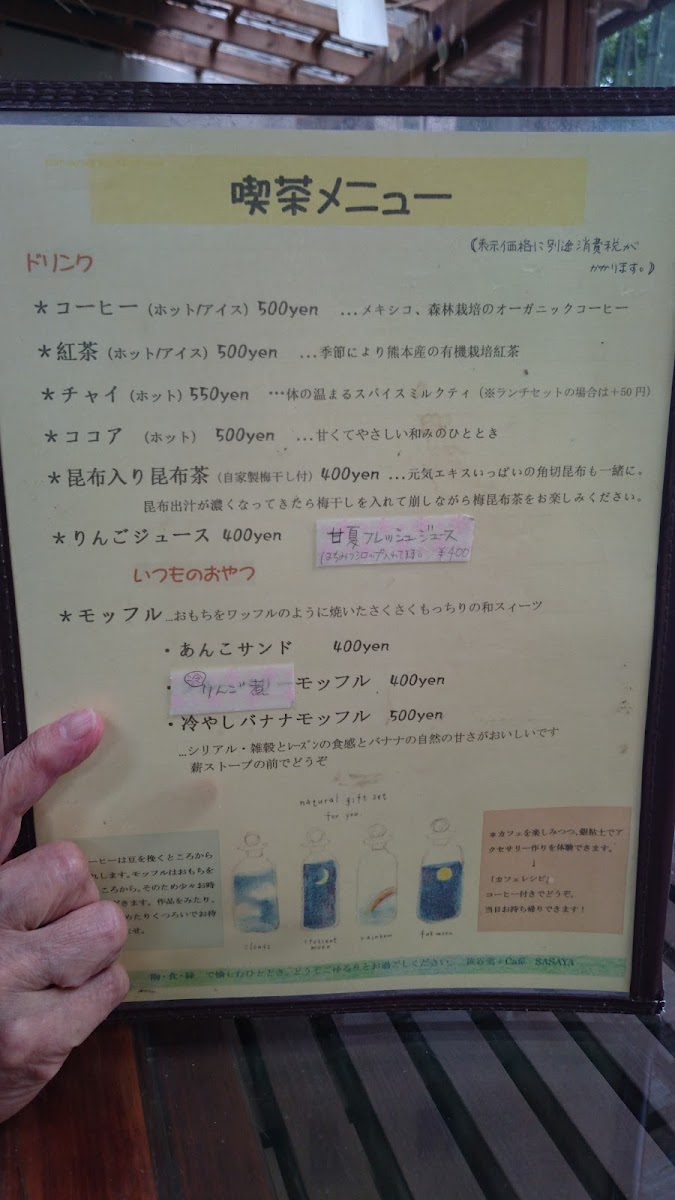 喫茶メニュー
《表示価格に別途消費税が
かかります。》
ドリンク
＊コーヒー（ホット/アイス）500yen …メキシコ、森林栽培のオーガニックコーヒー
＊紅茶（ホット/アイス）500yen …季節により熊本産の有機栽培紅茶
＊チャイ（ホット）550yen …体の温まるスパイスミルクティ（※ランチセットの場合は＋50円）
＊ココア （ホット） 500yen …甘くてやさしい和みのひととき
＊昆布入り昆布茶（自家製梅干し付）400yen …元気エキスいっぱいの角切昆布も一緒に。
昆布出汁が濃くなってきたら梅干しを入れて崩しながら梅昆布茶をお楽しみください。
＊りんごジュース 400yen
甘夏フレッシュジュース
はちみつシロップ入れてます。 ¥400
いつものおやつ
＊モッフル…おもちをワッフルのように焼いたさくさくもっちりの和スィーツ
・あんこサンド 400yen
・りんご煮ーモッフル 400yen
・冷やしバナナモッフル 500yen
…シリアル・雑穀とﾚｰｽﾞﾝの食感とバナナの自然の甘さがおいしいです
薪ストーブの前でどうぞ
natural gift set
for you.
ーヒーは豆を挽くところから
れします。モッフルはおもちを
ころから、そのため少々お時
できます。作品をみたり、
めたりくつろいでお待
せ。
clouds
crescent
moon
rainbow
full moon
＊カフェを楽しみつつ、銀粘土でア
クセサリー作りを体験できます。
↓
「カフェレシピ」
コーヒー付きでどうぞ。
当日お持ち帰りできます！
陶・食・緑 で愉しむひととき。どうぞごゆるりとお過ごしください。 Café SASAYA